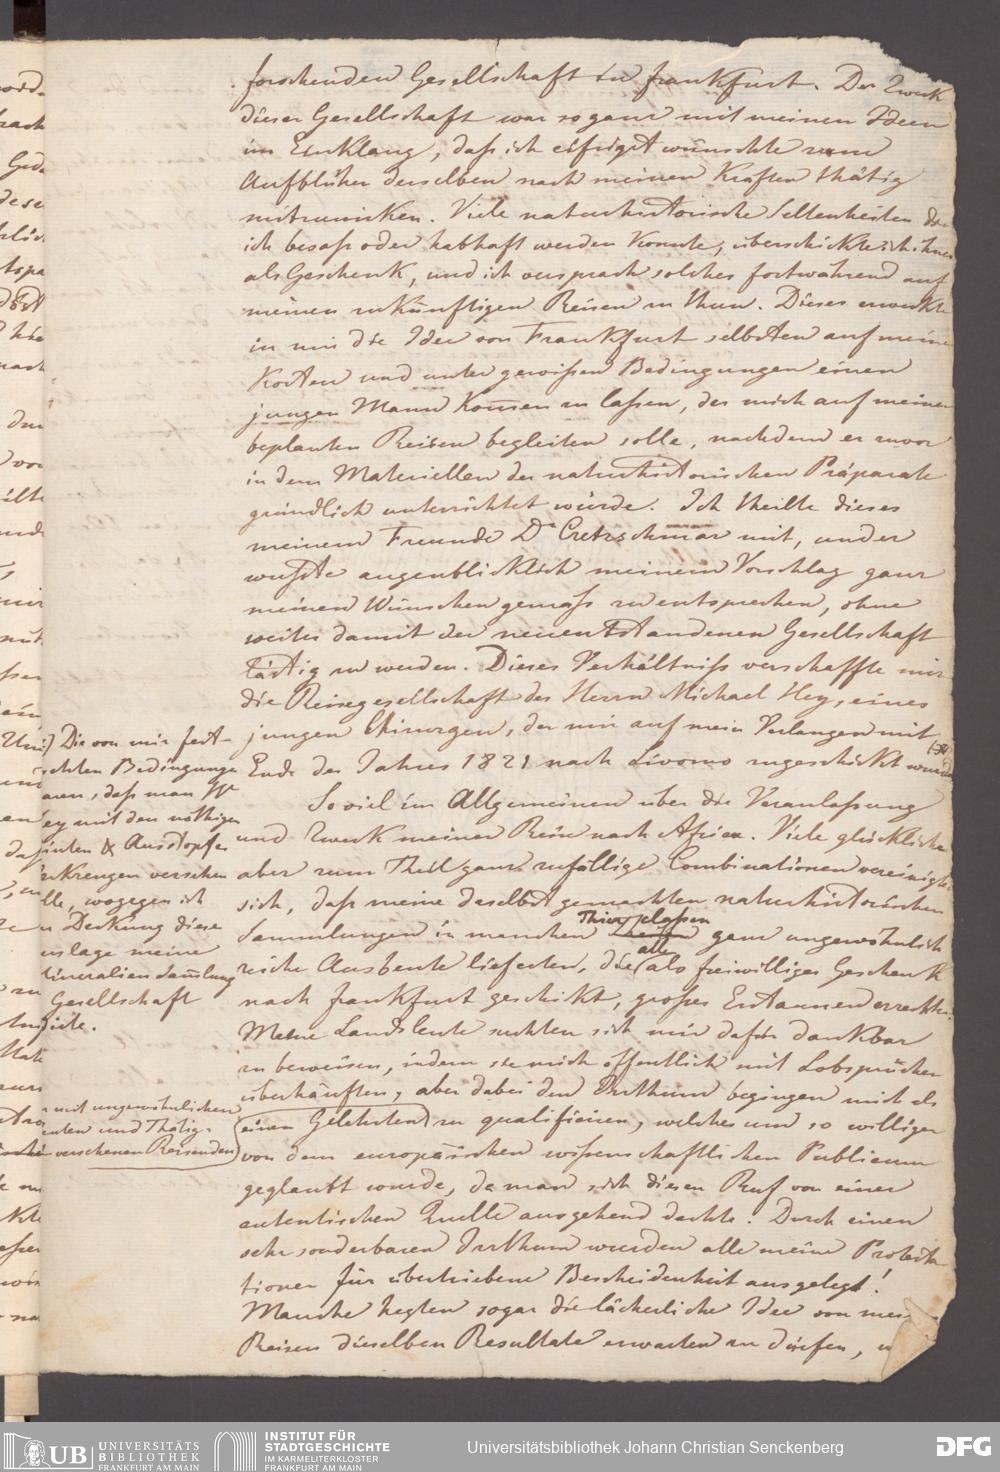 forschenden Gesellschaft in Frankfurt. Der Zweck
dieser Gesellschaft war so ganz mit meinen Ideen
im Einklang, daß ich eifrigst wünschte zum
Aufblühen derselben nach meinen Kräften thätig
mitzuwirken. Viele naturhistorische Seltenheiten die
ich besaß oder habhaft werden konnte, überschickte ich ihnen
als Geschenk, und ich versprach solches fortwährend auf
meinen zukünftigen Reisen zu thun. Dieses erweckte
in mir die Idee von Frankfurt selbsten auf meine
Kosten und unter gewißen Bedingungen einen
jungen Mann kommen zu laßen, der mich auf meinen
beplanten Reisen begleiten solle, nachdem er zuvor
in dem Materiellen der naturhistorischen Präparate
gründlich unterrichtet würde. Ich theilte dieses
meinem Freunde Dr Cretzschmar mit, und er
wußte augenblicklich meinem Vorschlag ganz
meinen Wünschen gemäß zu entsprechen, ohne
weiters damit der neuentstandenen Gesellschaft
lästig zu werden. Dieses Verhältniß verschaffte mir
die Reisegesellschaft des Herrn Michael Hey, eines
jungen Chirurgen, der mir auf mein Verlangen mit
Ende des Jahres 1821 nach Livorno zugeschickt wurde
So viel im Allgemeinen über die Veranlaßung
und Zweck meiner Reise nach Africa. Viele glückliche
aber zum Theil ganz zufällige Combinationen vereinigten
sich, daß meine daselbst gemachten naturhistorischen
Thierklaßen
Sammlungen in manchen ganz ungewöhnlich
alle
reiche Ausbeute lieferten, die als freiwilliges Geschenk
nach Frankfurt geschikt, großes Erstaunen erreckten.
Meine Landsleute suchten sich mir dafür dankbar
zu beweisen, indem sie mich öffentlich mit Lobsprüchen
überhäuften, aber dabei den Irrthum begingen mich als
einen Gelehrten zu qualificiren, welches um so williger
von dem europäischen wißenschaftlichen Publicum
geglaubt wurde, da man sich diesen Ruf von einer
autentischen Quelle ausgehend dachte. Durch einen
sehr sonderbaren Irrthum wurden alle meine Protesta
tionen für übertriebene Bescheidenheit ausgelegt!
Manche hegten sogar die lächerliche Idee von mei
Reisen dieselben Resultate erwarten zu dürfen,
Die von mir fest-
schten Bedingunge
aren, daß man Hr
ey mit den nöthigen
inten & Ausstopfer
verschen
lle, wogegen ich
u Deckung diese
uslage meine
ineralien Samlung
Gesellschaft
mit ungewöhnlichen
und Thätig-
versehenen Reisenden
UB UNIVERSITÄTS
BIBLIOTHEK
FRANKFURT AM MAIN
INSTITUT FÜR
STADTGESCHICHTE
IM KARMELITERKLOSTER
FRANKFURT AM MAIN
Universitätsbibliothek Johann Christian Senckenberg
DFG